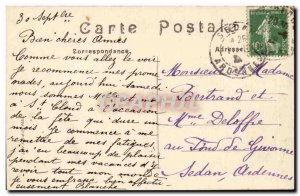 30 Septbre
Carte Postale
Correspondance
Adresse
Bien chères Amies
Comme vous allez le voir
je recommence mes prome
nades aujourd'hui nous
sommes
à St Cloud à l'occasion
de la fête qui dure un
mois. Je commence à me
remettre de mes fatigues,
j'ai eu beaucoup de plaisir
pendant mes vacances de
voir tout mon monde
je vous embrasse bien affectu
eusement Blanche
Monsieur Madame
Bertrand et
Mme Deloffre
au Fond de Givonne
Sedan Ardennes